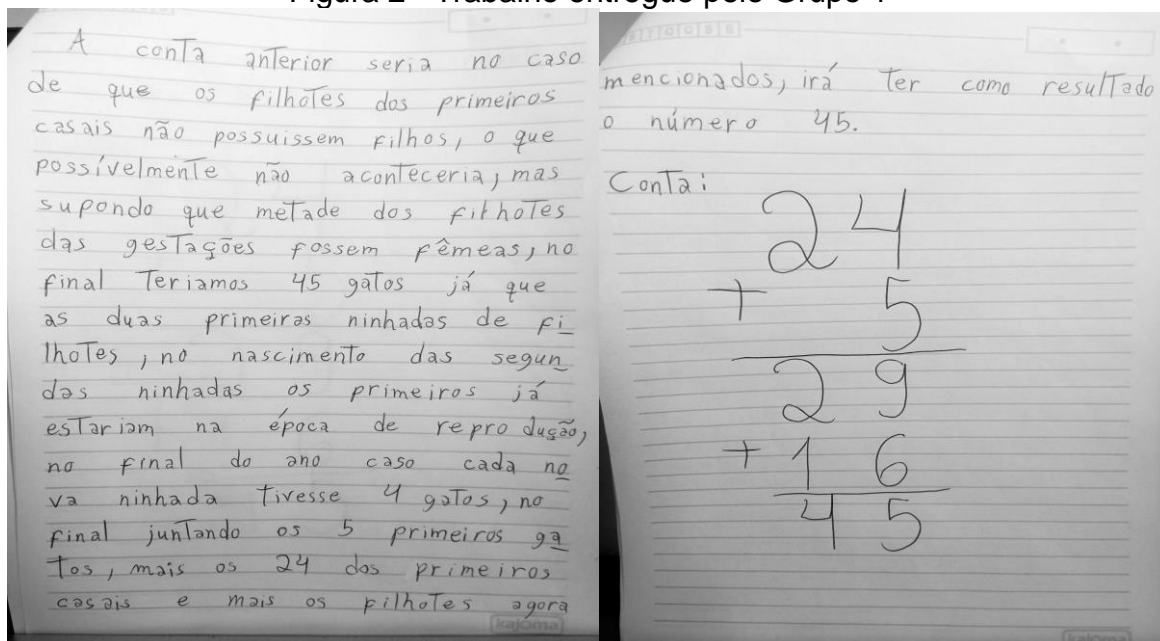 A conta anterior seria no caso
de que os filhotes dos primeiros
casais não possuissem filhos, o que
possívelmente não aconteceria, mas
supondo que metade dos filhotes
das gestações fossem fêmeas, no
final Teriamos 45 gatos já que
as duas primeiras ninhadas de fi
lhotes, no nascimento das segun
das ninhadas os primeiros já
estariam na época de reprodução,
no final do ano caso cada no
va ninhada tivesse 4 gatos, no
final juntando os 5 primeiros ga
tos, mais os 24 dos primeiros
casais e mais os filhotes agora
kajoma
mencionados, irá ter como resultado
o número 45.
Conta:
24
+ 5
29
+ 16
45
kajoma